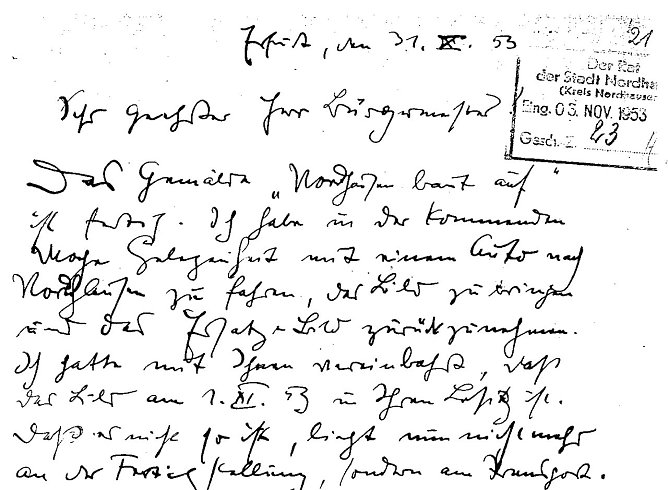 Erfurt, den 31. X. 53
21
Der Rat
der Stadt Nordha
(Kreis Nordhausen
Eing. 03. NOV. 1953
Gesch. Z. 23
Sehr geehrter Herr Bürgermeister!
Das Gemälde „Nordhausen baut auf"
ist fertig. Ich habe in der kommenden
Woche Gelegenheit mit einem Auto nach
Nordhausen zu fahren, das Bild zu bringen
und das Ersatz-Bild zurückzunehmen.
Ich hatte mit Ihnen vereinbahrt, daß
das Bild am 1. XI. 53 in Ihrem Besitz ist.
Daß es nicht so ist, liegt nun nicht mehr
an der Fertigstellung, sondern am Transport.